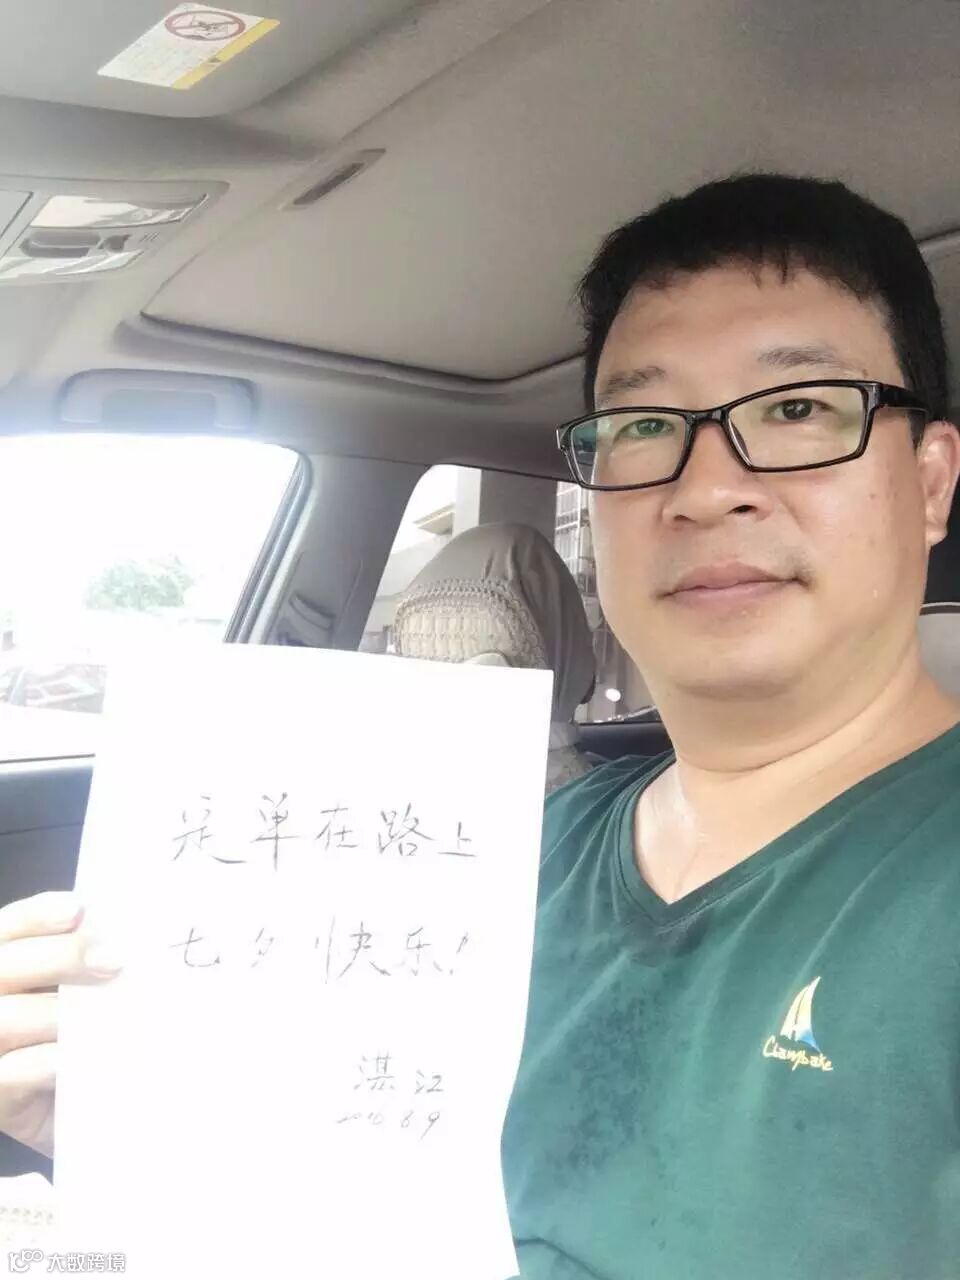 定单在路上
七夕快乐!
湛江
2016.8.9
Clambake
大数跨境